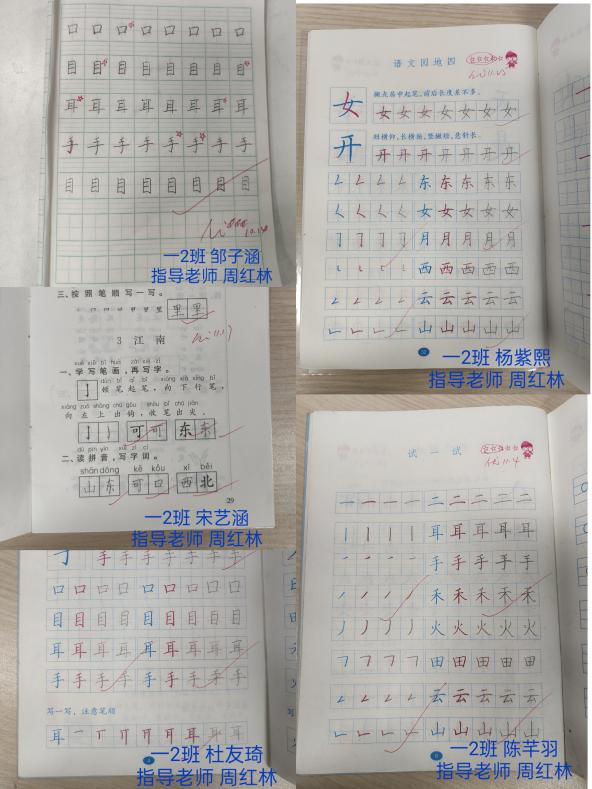 口 口 口 口 口 口 口 口
目 目 目 目 目 目 目 目
耳 耳 耳 耳 耳 耳 耳 耳
手 手 手 手 手 手 手 手
目 目 目 目 目 目 目 目
一2班 邹子涵
指导老师 周红林
语文园地四
女
撇点居中起笔,前后长度差不多。
女 女 女 女 女 女 女 女
开
开 开 开 开 开 开 开 开
东 东 东 东 东
女 女 女 女 女
月 月 月 月 月
西 西 西 西 西
云 云 云 云 云
山 山 山 山 山
一2班 杨紫熙
指导老师 周红林
三、按照笔顺写一写。
里 里
3 江南
一、学写笔画,再写字。
领笔起笔,向下行笔,
向左上出钩,收笔出尖。
可 可 东 东
二、读拼音,写字词。
shān dōng kě kǒu xī běi
山 东 可 口 西 北
29
一2班 宋艺涵
指导老师 周红林
手 手 手 手 手 手 手
口 口 口 口 口 口 口 口
目 目 目 目 目 目 目 目
耳 耳 耳 耳 耳 耳 耳 耳
手 手 手 手 手 手 手 手
写一写,注意笔顺
耳
一2班 杜友琦
指导老师 周红林
试一试
优 11.4
一 一 一 一 二 二 二 二 二
耳 耳 耳 耳 耳
手 手 手 手 手
禾 禾 禾 禾 禾
火 火 火 火 火
田 田 田 田 田
云 云 云 云 云
山 山 山 山 山
一2班 陈芊羽
指导老师 周红林